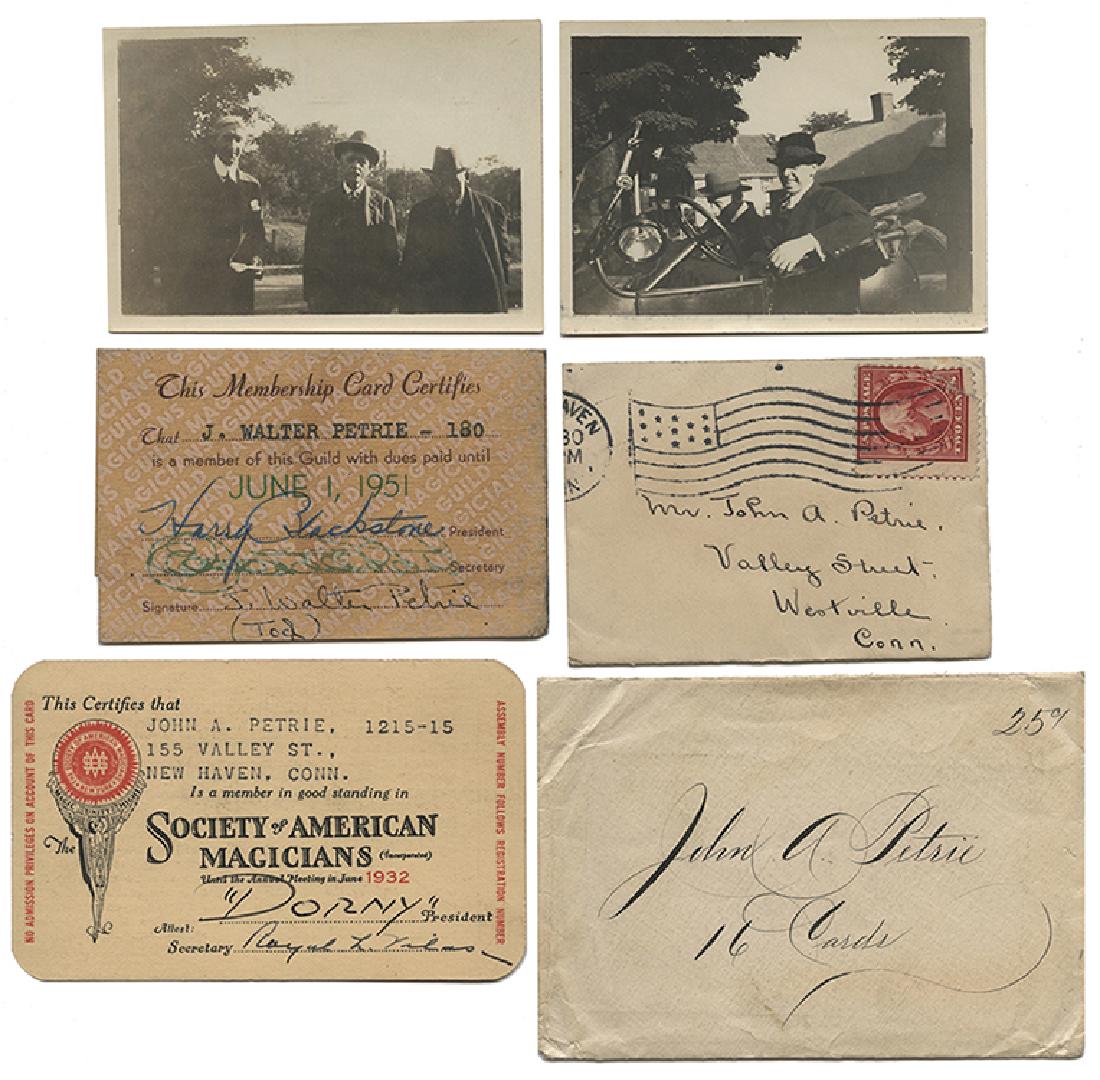 This Membership Card Certifies
That J. WALTER PETRIE - 180
is a member of this Guild with dues paid until
JUNE 1, 1951
Harry Blackstone President
Secretary
Signature J. Walter Petrie
(Tod)
AVEN
30
PM
Mr. John A. Petrie.
Valley Street.
Westville
Conn.
NO ADMISSION PRIVILEGES ON ACCOUNT OF THIS CARD
This Certifies that
JOHN A. PETRIE, 1215-15
155 VALLEY ST.,
NEW HAVEN, CONN.
Is a member in good standing in
The SOCIETY of AMERICAN
MAGICIANS (Incorporated)
Until the Annual Meeting in June 1932
"DORNY" President
Attest:
Secretary Royal L. Vilas
ASSEMBLY NUMBER FOLLOWS REGISTRATION NUMBER
John A. Petrie
16 Cards